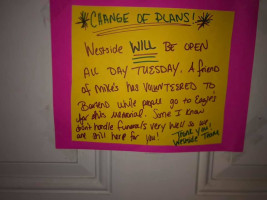 *CHANGE OF PLANS!*
WESTSIDE WILL BE OPEN
ALL DAY TUESDAY. A friend
of Mike's has VOLUNTEERED TO
Bartend while people go to Eagles
for his memorial. Some I know
don't handle funerals very well so we
are still here for you!
THANK YOU,
WESTSIDE TEAM